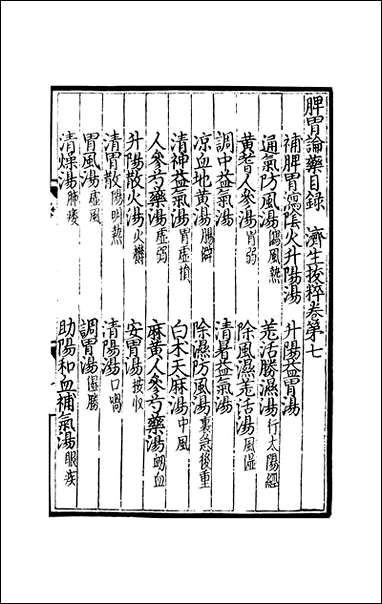 脾胃論藥目錄 濟生拔粹卷第七
補脾胃瀉陰火升陽湯 升陽益胃湯
通氣防風湯瀉風熱 羌活勝濕湯行太陽經
黄耆人參湯胃弱 除風濕羌活湯風濕
調中益氣湯 清暑益氣湯
凉血地黄湯腸澼 除濕防風湯裏急後重
清神益氣湯胃虚憒 白术天麻湯中風
人參芍藥湯虚弱 麻黄人參芍藥湯衂血
升陽散火湯火欝 安胃湯
清胃散陽明熱 清陽湯口喎
胃風湯虚風 調胃湯
清燥湯肺痿 助陽和血補氣湯眼疾